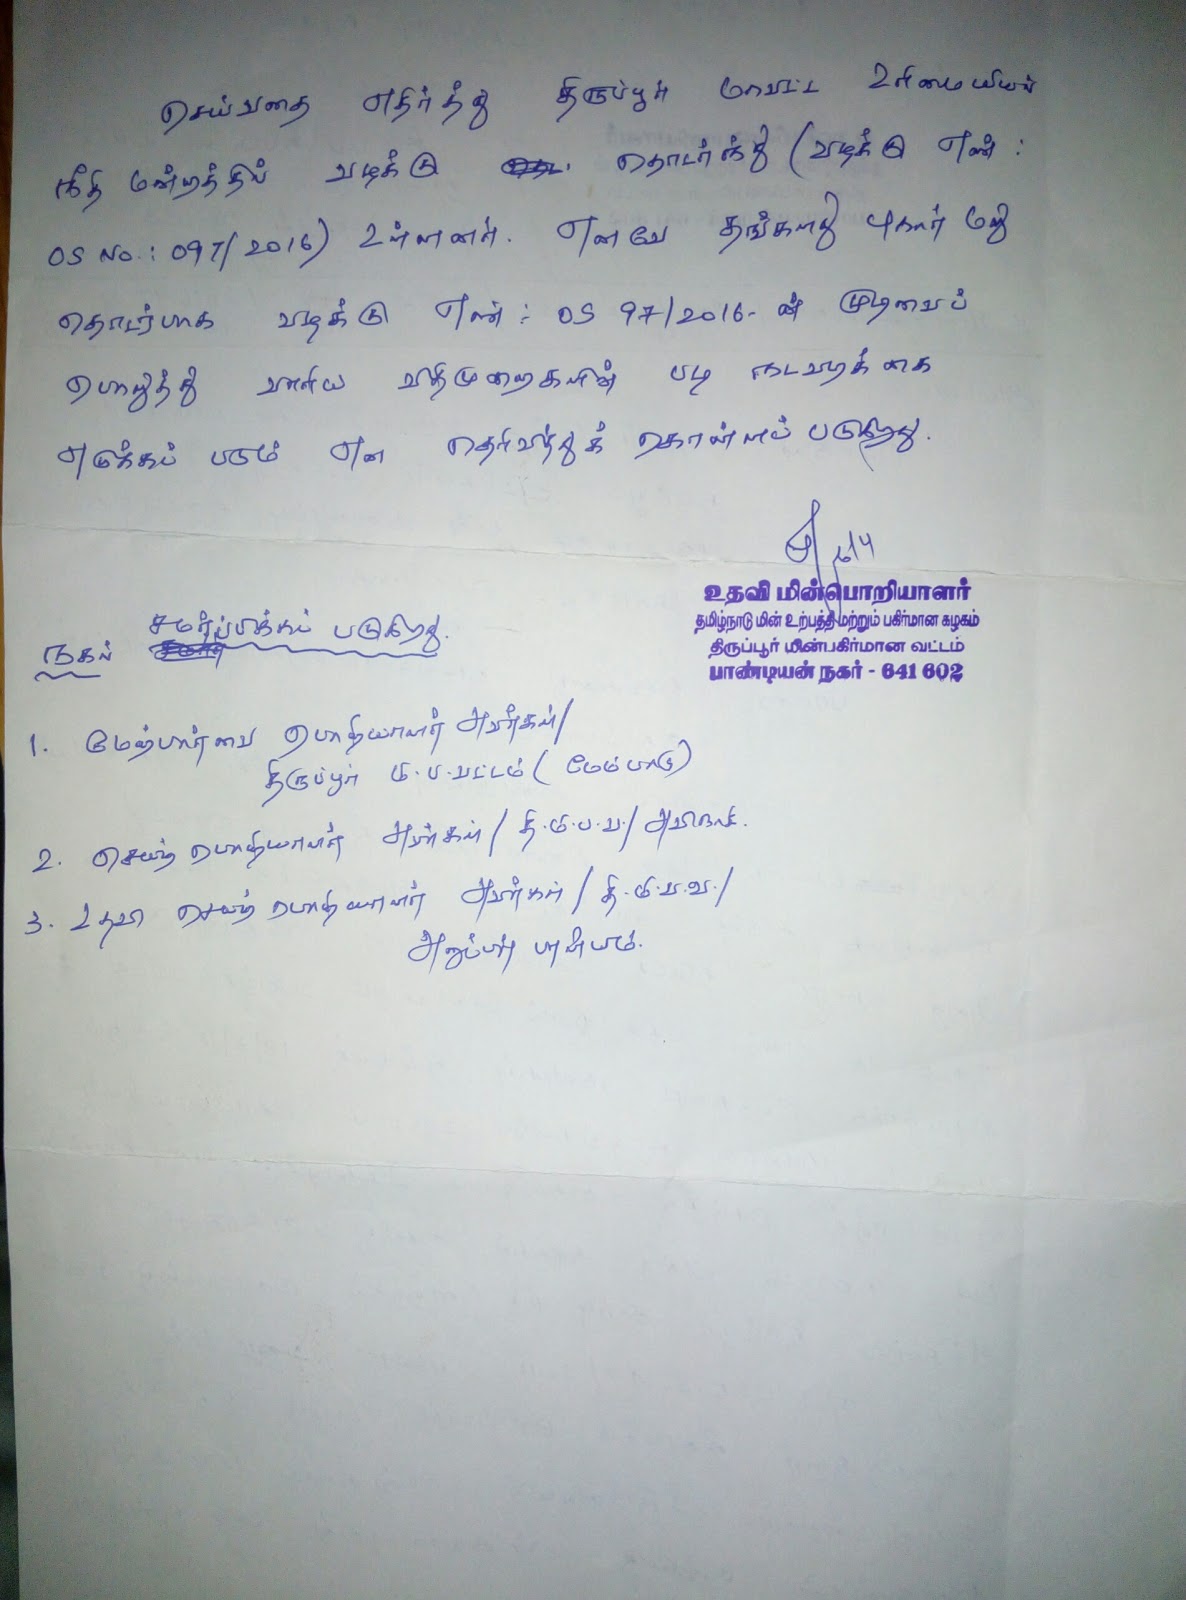 செய்வதை எதிர்த்து திருப்பூர் மாவட்ட உரிமையியல்
நீதி மன்றத்தில் வழக்கு தொடர்ந்து (வழக்கு எண் :
OS No.: 097/2016) உள்ளனர். எனவே தங்களது புகார் மனு
தொடர்பாக வழக்கு எண் : OS 97/2016-ன் முடிவைப்
பொறுத்து வாரிய விதிமுறைகளின் படி நடவடிக்கை
எடுக்கப் படும் என தெரிவித்துக் கொள்ளப் படுகிறது.
உதவி மின்பொறியாளர்
தமிழ்நாடு மின் உற்பத்தி மற்றும் பகிர்மான கழகம்
திருப்பூர் மின்பகிர்மான வட்டம்
பாண்டியன் நகர் - 641 602
நகல் சமர்ப்பிக்கப் படுகிறது.
1. மேற்பார்வை பொறியாளர் அவர்கள்/
திருப்பூர் மி.ப.வட்டம் (மேம்பாடு)
2. செயற் பொறியாளர் அவர்கள்/ தி.மி.ப.வ/ அவிநாசி.
3. உதவி செயற் பொறியாளர் அவர்கள்/ தி.மி.ப.வ./
அனுப்பர் பாளையம்.